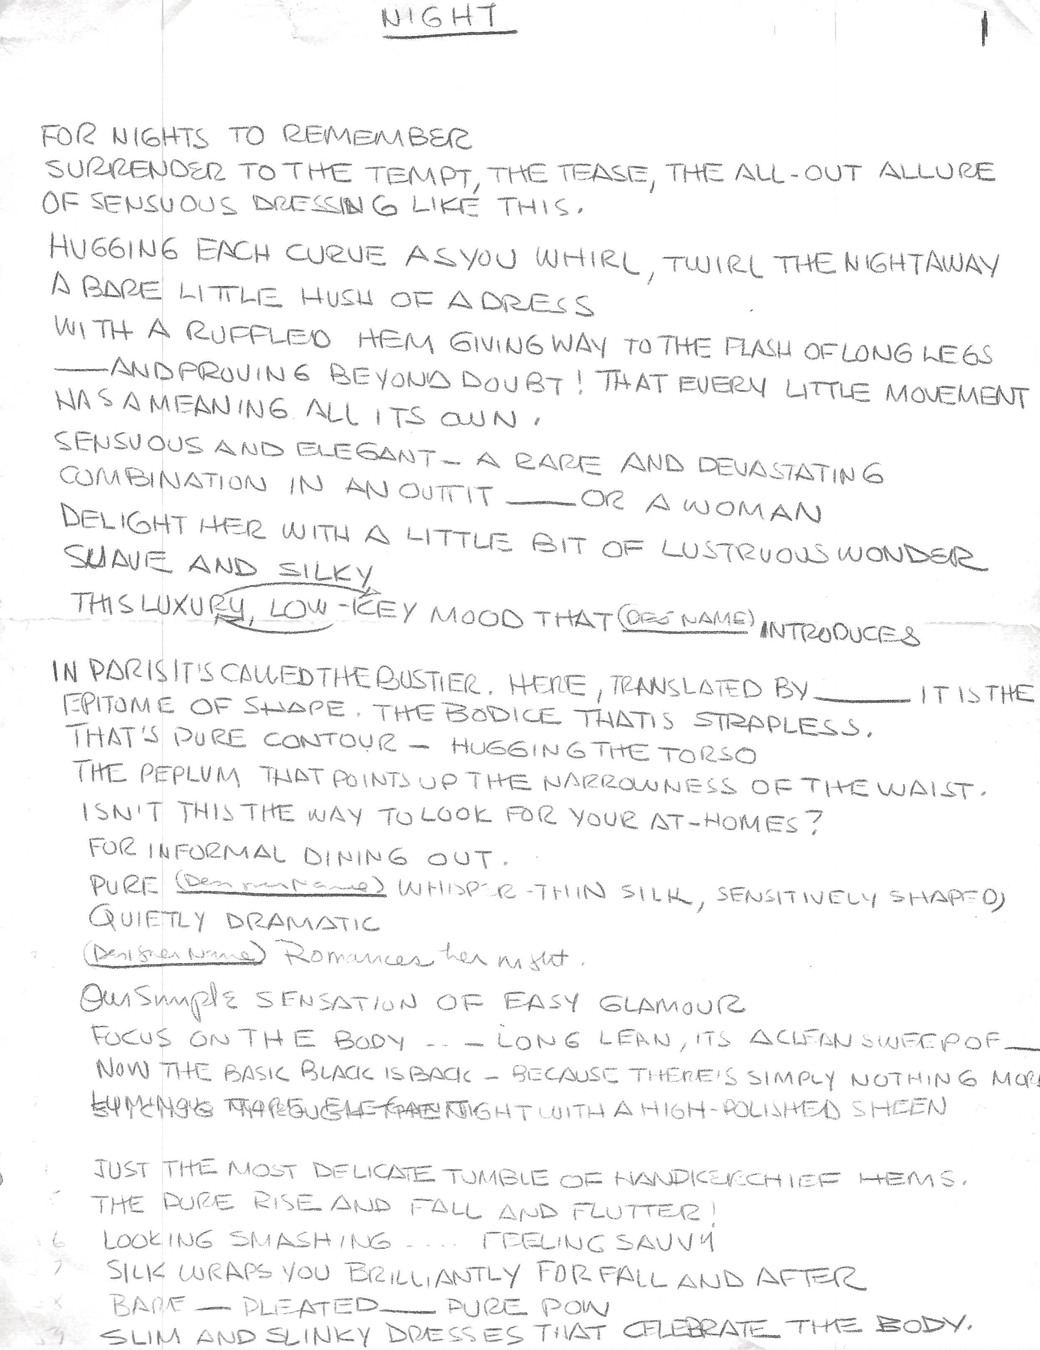 NIGHT
1
FOR NIGHTS TO REMEMBER
SURRENDER TO THE TEMPT, THE TEASE, THE ALL-OUT ALLURE
OF SENSUOUS DRESSING LIKE THIS.
HUGGING EACH CURVE AS YOU WHIRL, TWIRL THE NIGHT AWAY
A BARE LITTLE HUSH OF A DRESS
WITH A RUFFLED HEM GIVING WAY TO THE FLASH OF LONG LEGS
—— AND PROVING BEYOND DOUBT! THAT EVERY LITTLE MOVEMENT
HAS A MEANING ALL ITS OWN.
SENSUOUS AND ELEGANT — A RARE AND DEVASTATING
COMBINATION IN AN OUTFIT ____ OR A WOMAN
DELIGHT HER WITH A LITTLE BIT OF LUSTRUOUS WONDER
SUAVE AND SILKY
THIS LUXURY, LOW-KEY MOOD THAT (DES NAME) INTRODUCES
IN PARIS IT'S CALLED THE BUSTIER. HERE, TRANSLATED BY ____ IT IS THE
EPITOME OF SHAPE. THE BODICE THAT IS STRAPLESS.
THAT'S PURE CONTOUR — HUGGING THE TORSO
THE PEPLUM THAT POINTS UP THE NARROWNESS OF THE WAIST.
ISN'T THIS THE WAY TO LOOK FOR YOUR AT-HOMES?
FOR INFORMAL DINING OUT.
PURE (Designer Name) WHISPER-THIN SILK, SENSITIVELY SHAPED,
QUIETLY DRAMATIC
(Designer Name) Romances her night.
Our Simple SENSATION OF EASY GLAMOUR
FOCUS ON THE BODY .. — LONG LEAN, ITS A CLEAN SWEEP OF ____
NOW THE BASIC BLACK IS BACK — BECAUSE THERE'S SIMPLY NOTHING MORE
NIGHT WITH A HIGH-POLISHED SHEEN
JUST THE MOST DELICATE TUMBLE OF HANDKERCHIEF HEMS.
THE PURE RISE AND FALL AND FLUTTER!
6 LOOKING SMASHING .... FEELING SAVVY
7 SILK WRAPS YOU BRILLIANTLY FOR FALL AND AFTER
BARE — PLEATED —— PURE POW
SLIM AND SLINKY DRESSES THAT CELEBRATE THE BODY.